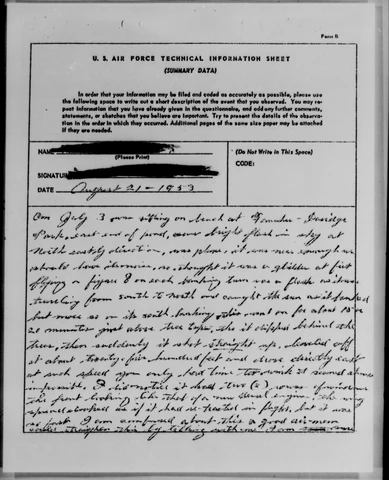 Form B
U. S. AIR FORCE TECHNICAL INFORMATION SHEET
(SUMMARY DATA)
In order that your information may be filed and coded as accurately as possible, please use
the following space to write out a short description of the event that you observed. You may re-
peat information that you have already given in the questionnaire, and add any further comments,
statements, or sketches that you believe are important. Try to present the details of the observa-
tion in the order in which they occurred. Additional pages of the same size paper may be attached
if they are needed.
NAME
(Please Print)
SIGNATURE
DATE August 21 - 1953
(Do Not Write in This Space)
CODE:
On July 3 was sitting on bench at
Park, east end of pond, saw bright flash in sky at
North easterly direction, was plane, it was near enough we
should have it was a glider at first
flying a figure 8 on each banking turn was a flash as it was
traveling from south to north and caught the sun as it banked
but more so on its south banking this went on for about 15 or
20 minutes just above tree tops, the it dipped behind the
trees, then suddenly it shot straight up, leveled off
at about twenty-five hundred feet and drove directly east
at such speed you only had time to it seemed almost
impossible, I did notice it had two (2) rows of windows
the front looking like that of a new diesel engine, the way
speed looked as if it had in flight, but it was
I am confused about this a good air-men
could straighten this by talking with me. I am